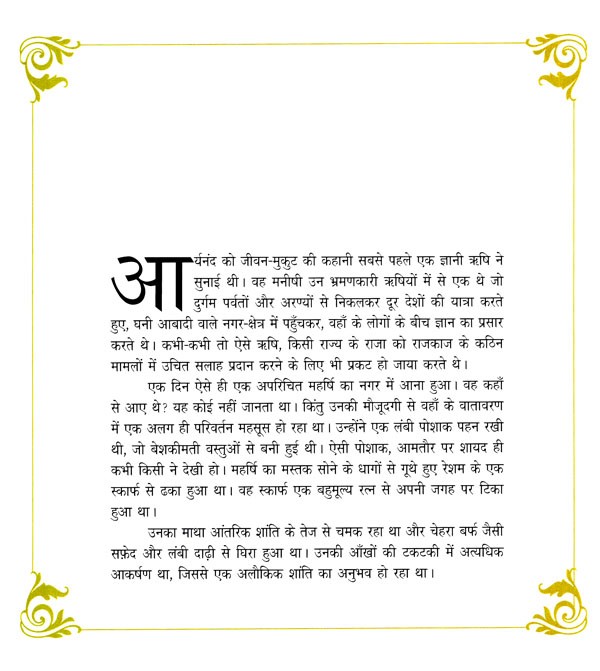 आर्यनंद को जीवन-मुकुट की कहानी सबसे पहले एक ज्ञानी ऋषि ने
सुनाई थी। वह मनीषी उन भ्रमणकारी ऋषियों में से एक थे जो
दुर्गम पर्वतों और अरण्यों से निकलकर दूर देशों की यात्रा करते
हुए, घनी आबादी वाले नगर-क्षेत्र में पहुँचकर, वहाँ के लोगों के बीच ज्ञान का प्रसार
करते थे। कभी-कभी तो ऐसे ऋषि, किसी राज्य के राजा को राजकाज के कठिन
मामलों में उचित सलाह प्रदान करने के लिए भी प्रकट हो जाया करते थे।
एक दिन ऐसे ही एक अपरिचित महर्षि का नगर में आना हुआ। वह कहाँ
से आए थे? यह कोई नहीं जानता था। किंतु उनकी मौजूदगी से वहाँ के वातावरण
में एक अलग ही परिवर्तन महसूस हो रहा था। उन्होंने एक लंबी पोशाक पहन रखी
थी, जो बेशकीमती वस्तुओं से बनी हुई थी। ऐसी पोशाक, आमतौर पर शायद ही
कभी किसी ने देखी हो। महर्षि का मस्तक सोने के धागों से गूथे हुए रेशम के एक
स्कार्फ से ढका हुआ था। वह स्कार्फ एक बहुमूल्य रत्न से अपनी जगह पर टिका
हुआ था।
उनका माथा आंतरिक शांति के तेज से चमक रहा था और चेहरा बर्फ जैसी
सफ़ेद और लंबी दाढ़ी से घिरा हुआ था। उनकी आँखों की टकटकी में अत्यधिक
आकर्षण था, जिससे एक अलौकिक शांति का अनुभव हो रहा था।